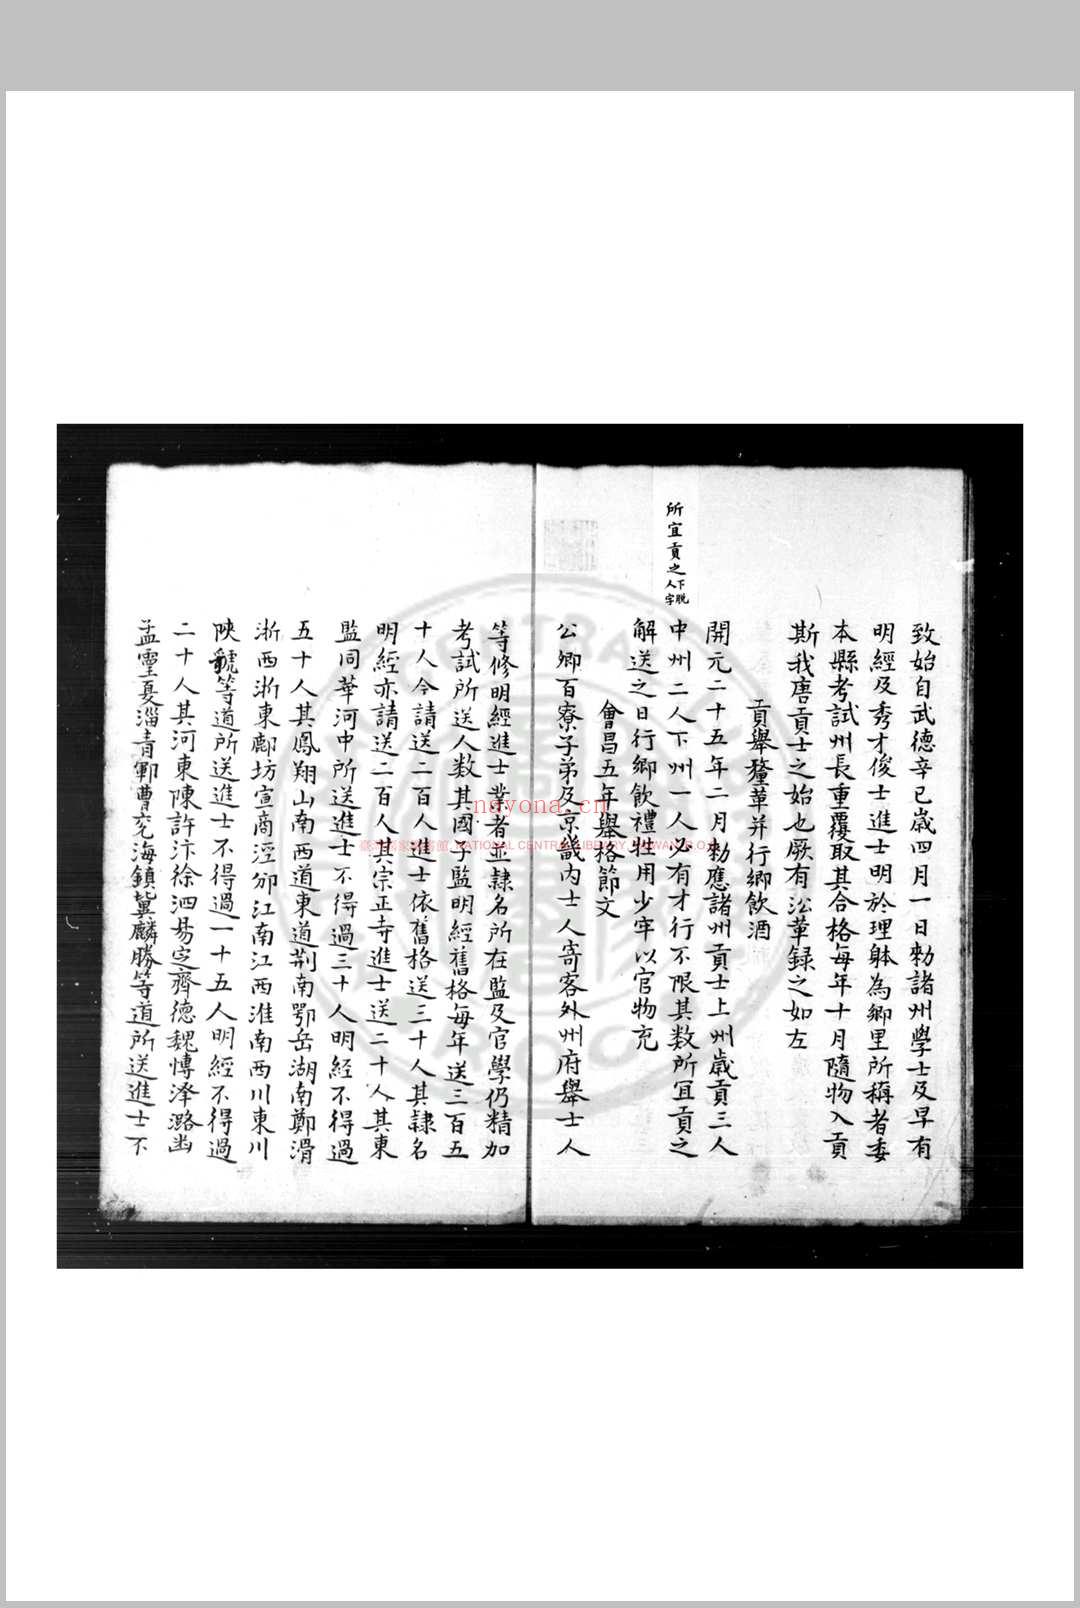 致始自武德辛巳歲四月一日勑諸州學士及早有
明經及秀才俊士進士明於理躰為鄉里所稱者委
本縣考試州長重覆取其合格每年十月隨物入貢
斯我唐貢士之始也厥有沿革録之如左
貢舉釐革并行鄉飲酒
開元二十五年二月勑應諸州貢士上州歲貢三人
中州二人下州一人必有才行不限其數所宜貢之
所宜貢之下脱人字
解送之日行鄉飲禮牲用少牢以官物充
會昌五年舉格節文
公卿百寮子弟及京畿內士人寄客外州府舉士人
等修明經進士業者並隷名所在監及官學仍精加
考試所送人數其國子監明經舊格每年送三百五
十人今請送二百人進士依舊格送三十人其隷名
明經亦請送二百人其宗正寺進士送二十人其東
監同華河中所送進士不得過三十人明經不得過
五十人其鳳翔山南西道東道荆南鄂岳湖南鄭滑
浙西浙東鄜坊宣商涇邠江南江西淮南西川東川
陝虢等道所送進士不得過一十五人明經不得過
二十人其河東陳許汴徐泗易定齊德魏愽澤潞幽
孟靈夏淄青鄆曹兖海鎮冀麟勝等道所送進士不
nayona.cn
NATIONAL CENTRAL LIBRARY, TAIWAN, R.O.C